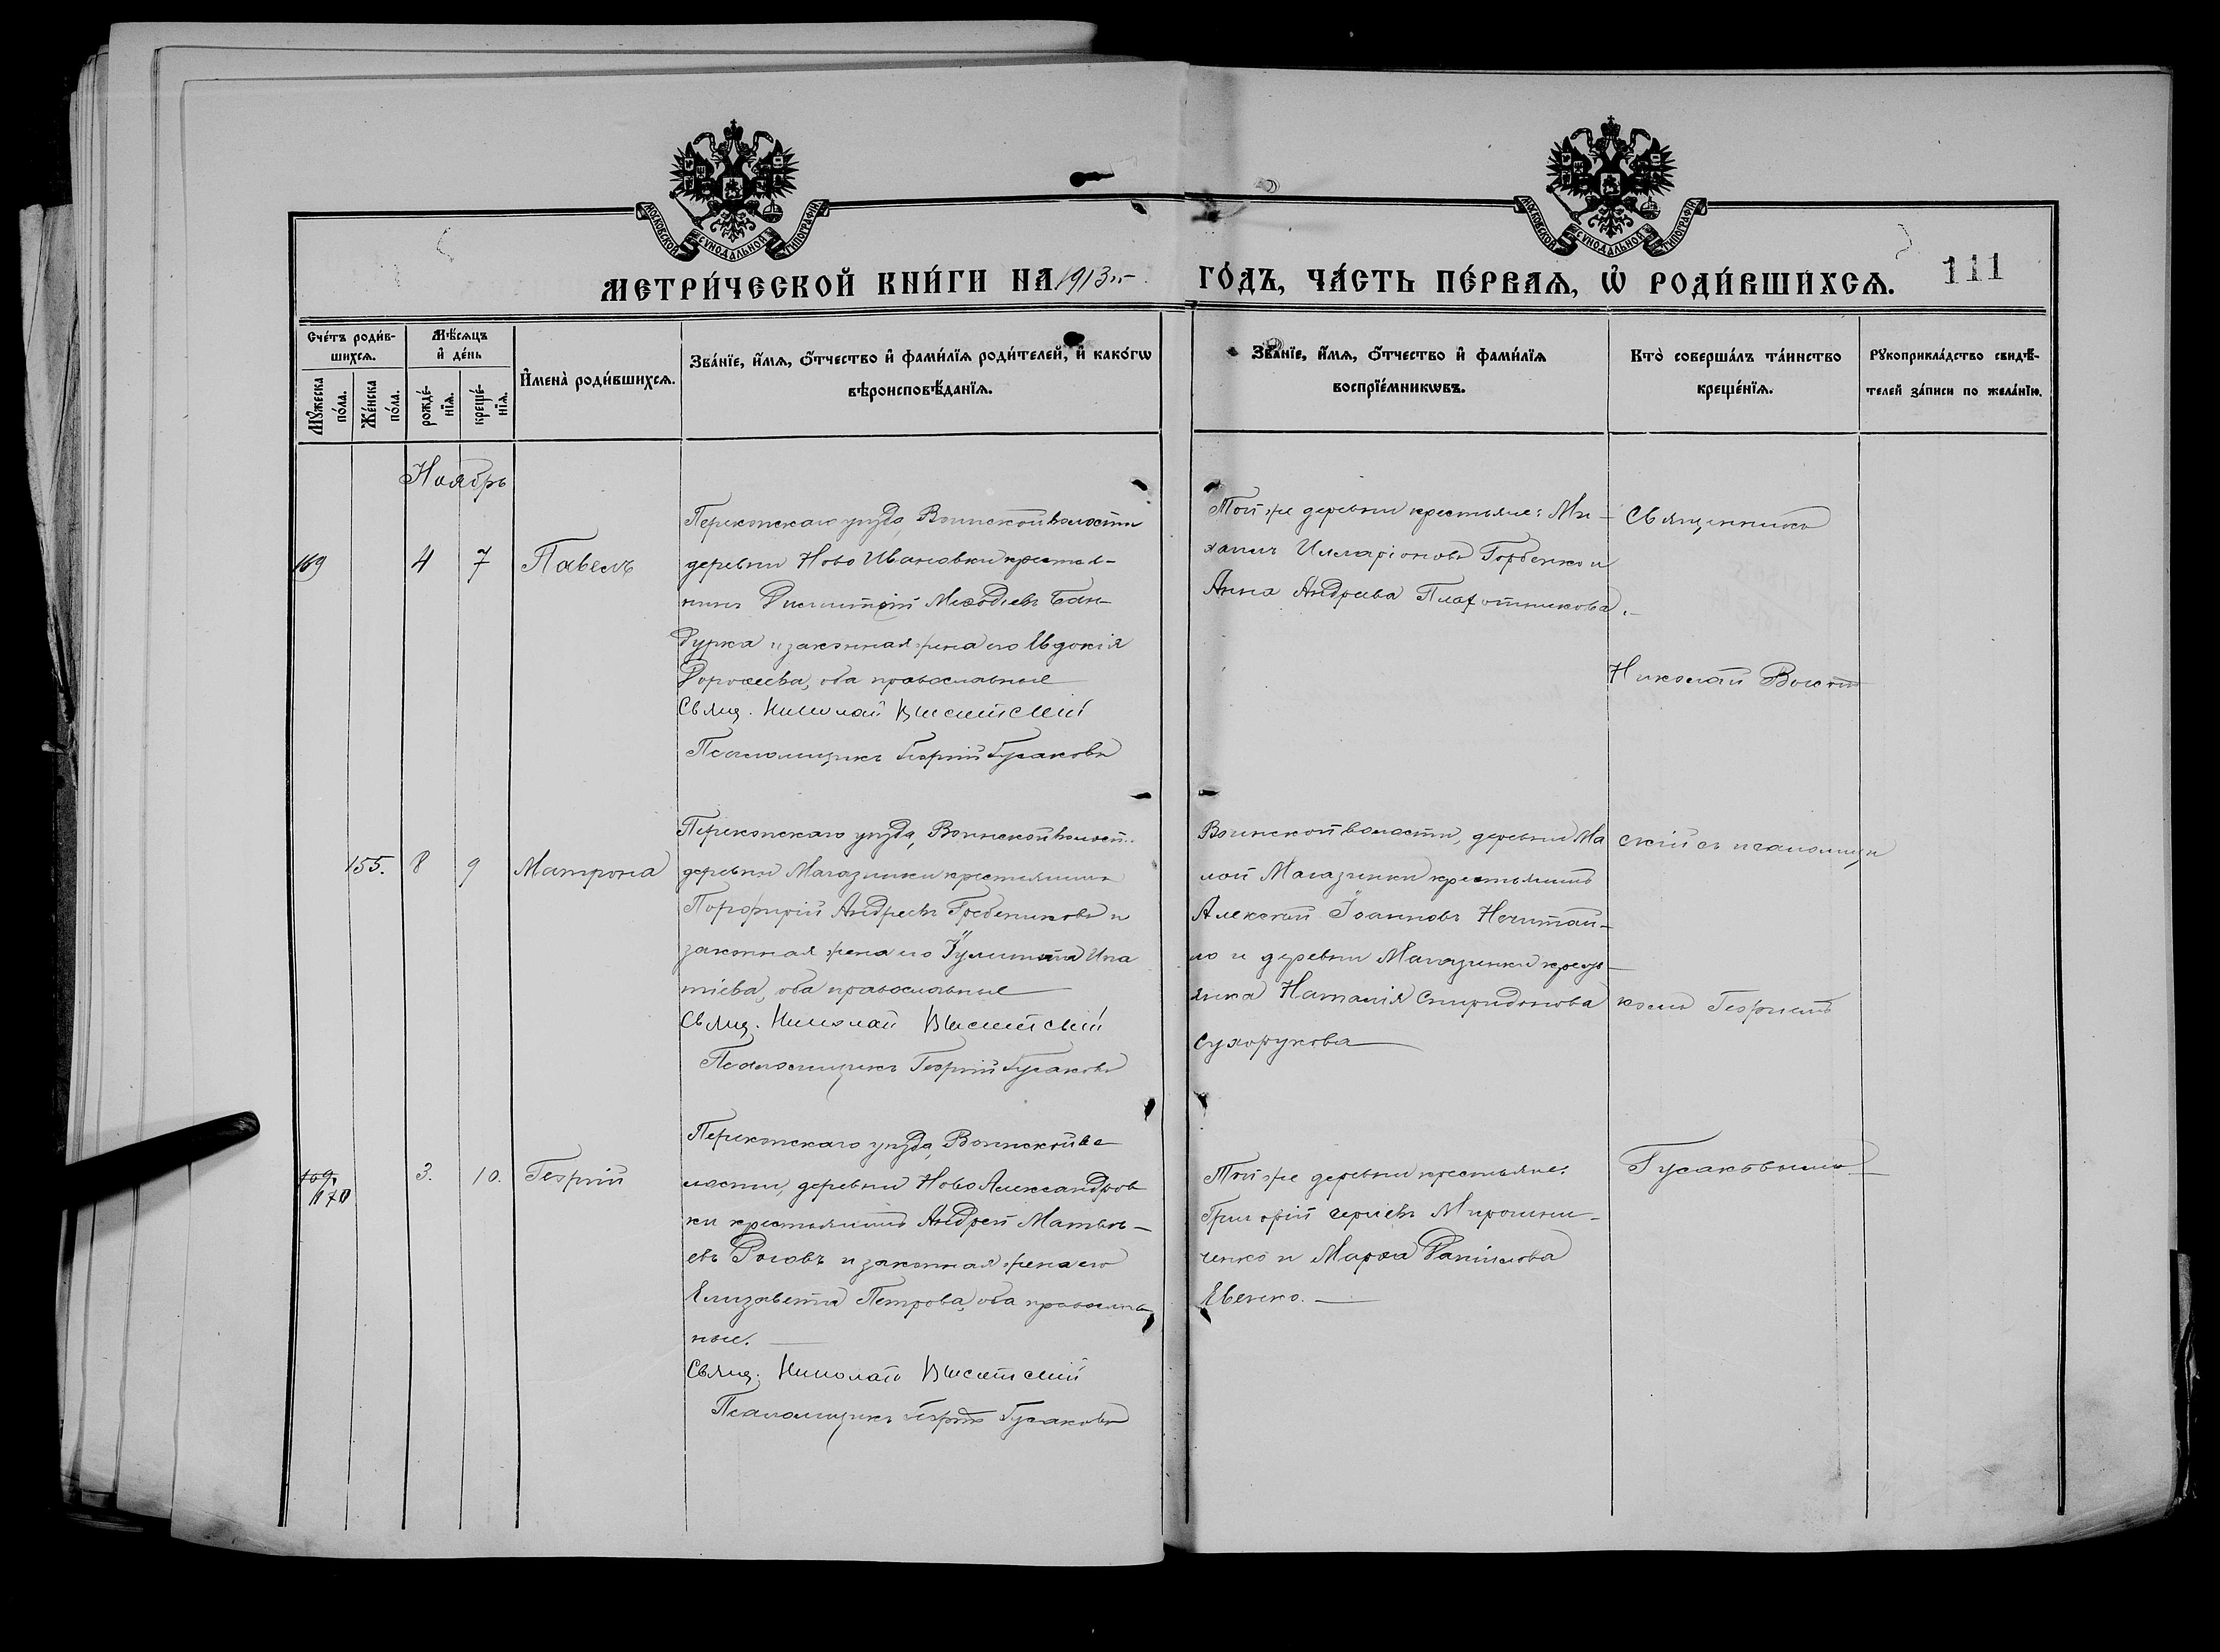 МОСКОВСКОЙ СУНОДАЛЬНОЙ ТИПОГРАФІИ
МОСКОВСКОЙ СУНОДАЛЬНОЙ ТИПОГРАФІИ
МЕТРИ́ЧЕСКОЙ КНИ́ГИ НА 1913 ГО́ДЪ, ЧА́СТЬ ПЕ́РВАѦ, Ѡ РОДИ́ВШИХСѦ.
111
Сче́тъ роди́в-
шихсѧ.
Мꙋ́жеска
по́ла.
Же́нска
по́ла.
Мѣ́сѧцъ
и҆ де́нь
рожде́-
нїѧ.
креще́-
нїѧ.
И҆мена̀ роди́вшихсѧ.
Зва́нїе, и҆́мѧ, ѻ҆́тчество и҆ фами́лїѧ роди́телей, и҆ како́гѡ
вѣроисповѣ́данїѧ.
Зва́нїе, и҆́мѧ, ѻ҆́тчество и҆ фами́лїѧ
воспрїе́мникѡвъ.
Кто̀ соверша́лъ та́инство
креще́нїѧ.
Рꙋкоприкла́дство свидѣ́-
телей за́писи по жела́нїю.
Ноябрь
169
4
7
Павелъ
Перекопскаго уѣзда, Воинской волости
деревни Ново Ивановки крестья-
нинъ Димитрій Меѳодіевъ Бан-
дурка и законная жена его Евдокія
Дороѳеева, оба православные
Свящ. Николай Высотскій
Псаломщикъ Георгій Гусаковъ
Той же деревни крестьяне: Ми-
хаилъ Илларіоновъ Горбенко и
Анна Андреева Плахотникова.
Священникъ
Николай Высот
155.
8
9
Матрона
Перекопскаго уѣзда, Воинской волост.
деревни Магазинки крестьянинъ
Порфирій Андреевъ Гребениковъ и
законная жена его Іулитта Ипа
тіева, оба православные
Свящ. Николай Высотскій
Псаломщикъ Георгій Гусаковъ
Воинской волости, деревни Ма
лой Магазинки крестьянинъ
Алексѣй Іоанновъ Нечитай-
ло и деревни Магазинки крест-
янка Наталія Спиридонова
Сухорукова
скій съ псаломщи
комъ Георгіемъ
169.
170
3.
10.
Георгій
Перекопскаго уѣзда, Воинской во
лости, деревни Ново Александров
ки крестьянинъ Андрей Матвѣ-
евъ Роговъ и законная жена его
Елизавета Петрова, оба православ
ные.
Свящ. Николай Высотскій
Псаломщикъ Георгій Гусаковъ
Той же деревни крестьяне:
Григорій Сергіевъ Мирошни-
ченко и Марѳа Даніилова
Евенко.
Гусаковымъ